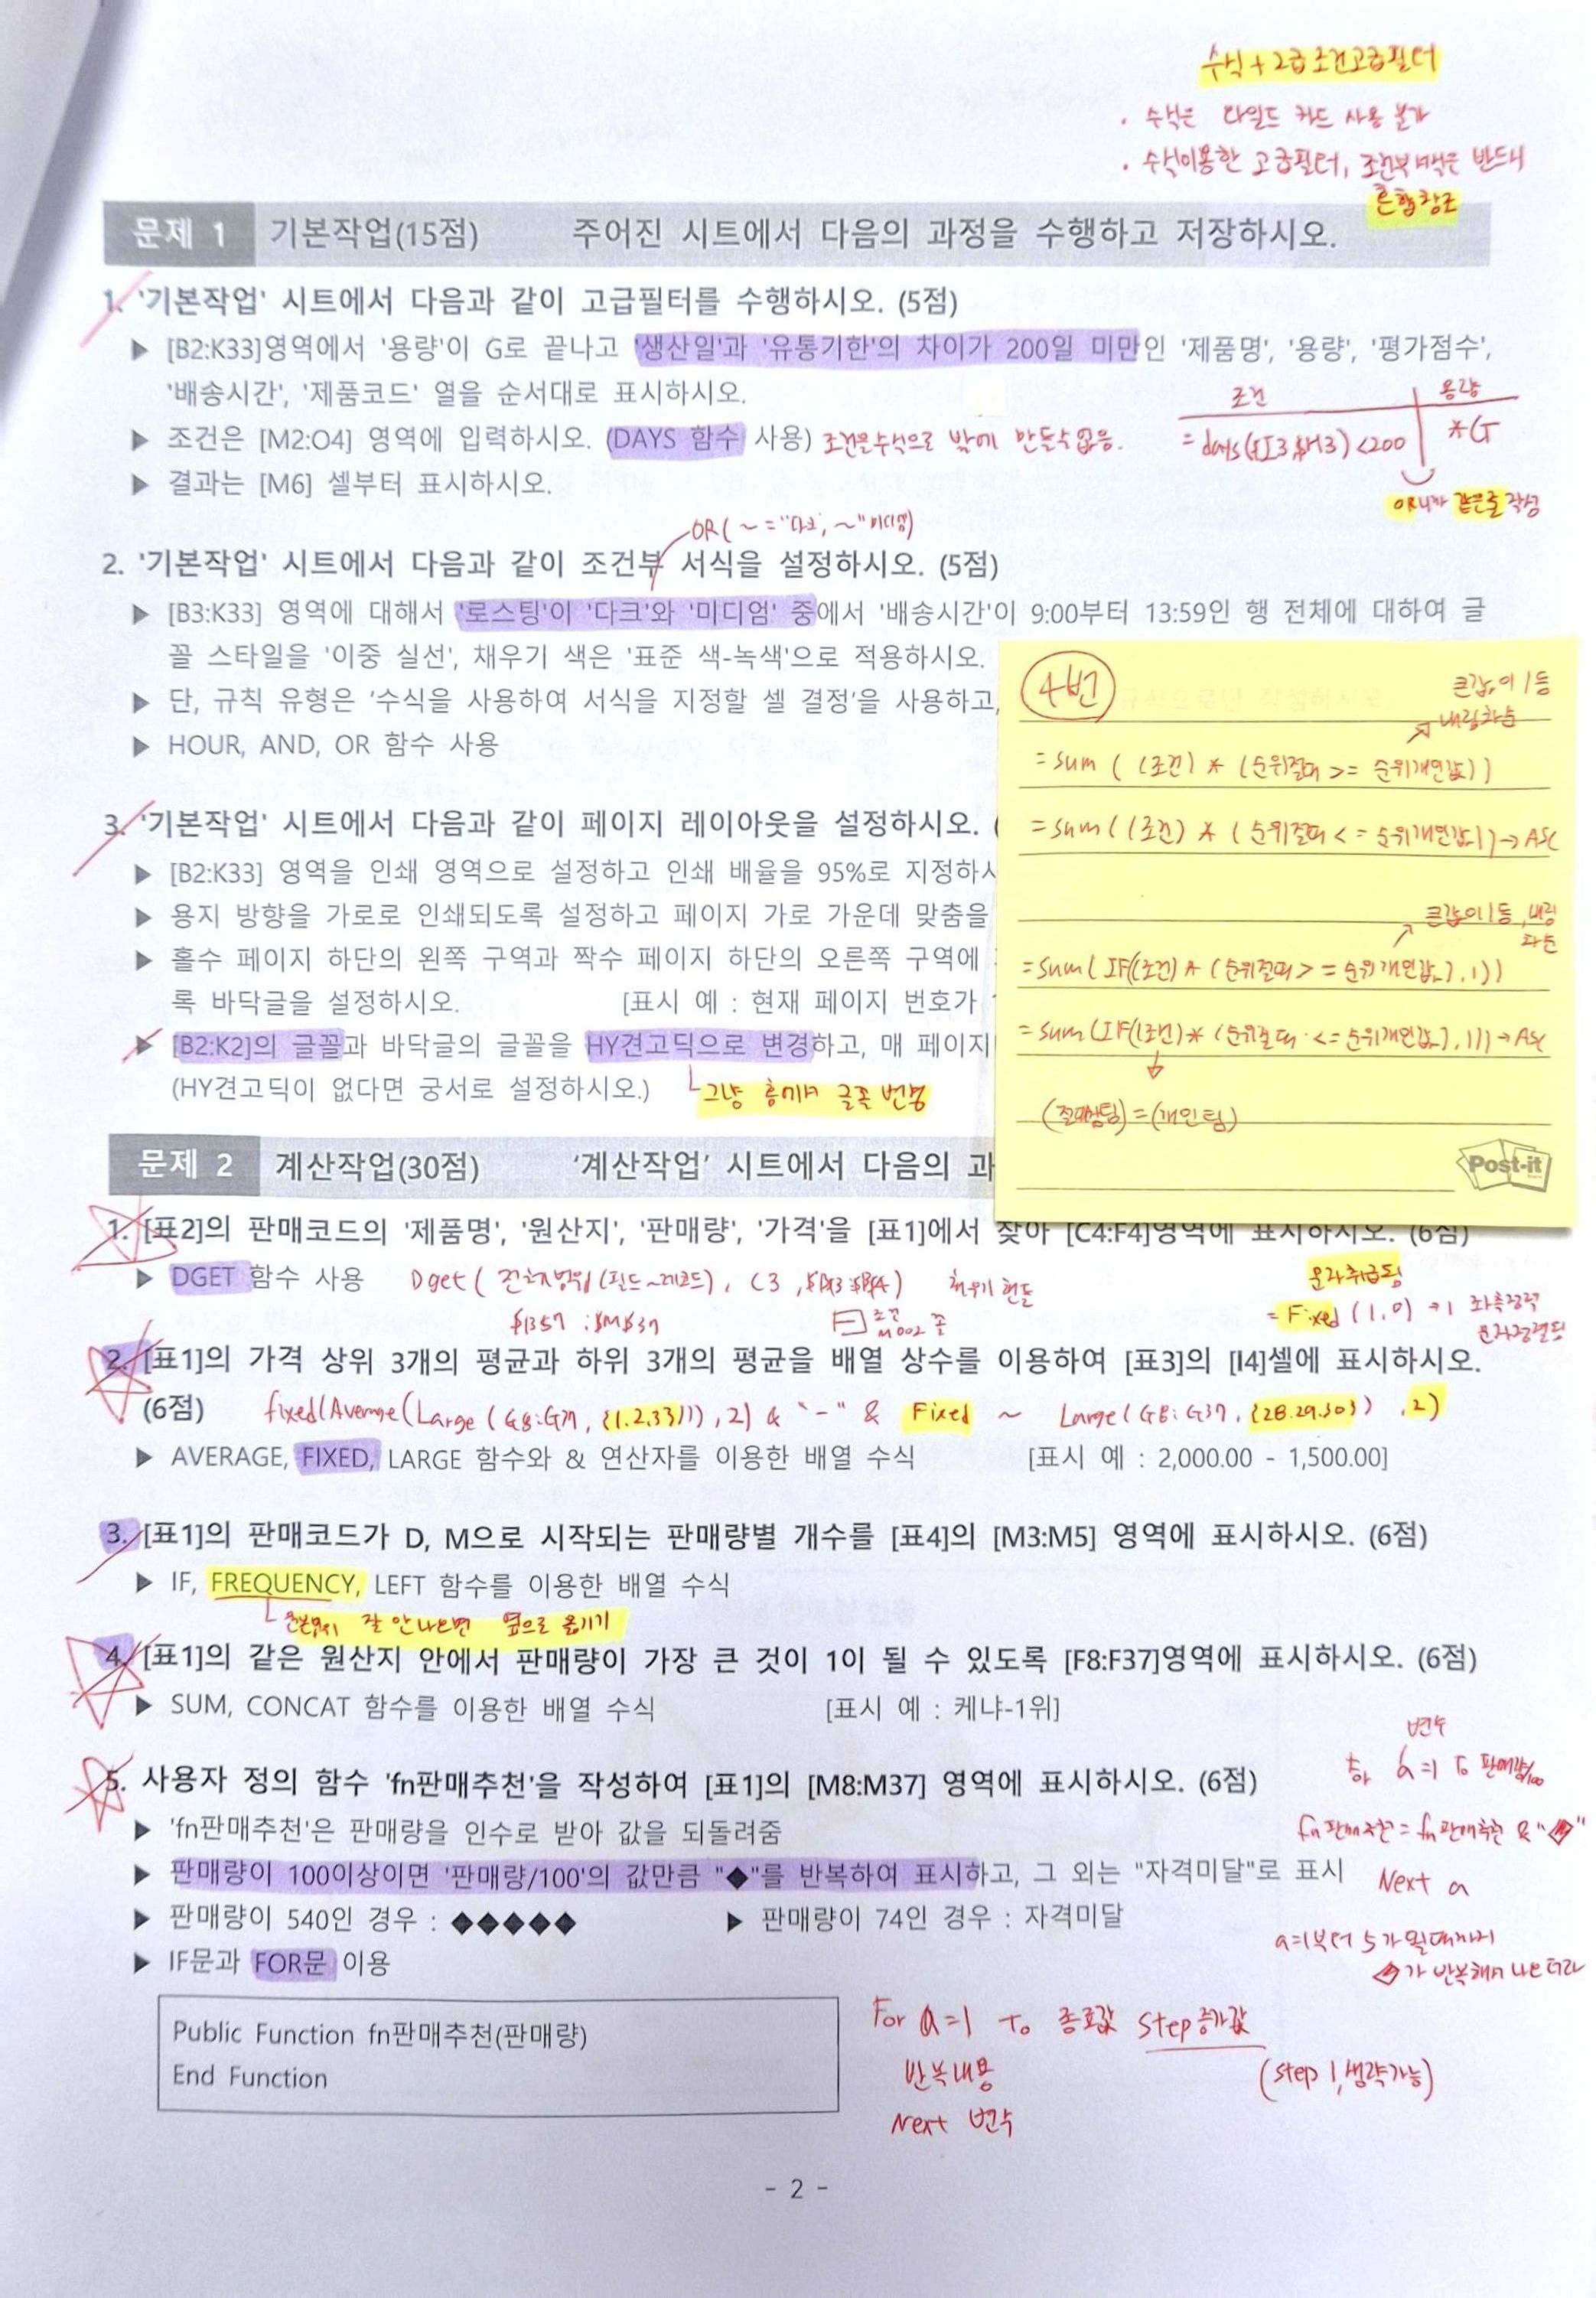 수식 + 2급 조건고급필터
· 수식은 와일드 카드 사용 불가
· 수식이용한 고급필터, 조건부여석은 반드시
혼합참조
문제 1 기본작업(15점) 주어진 시트에서 다음의 과정을 수행하고 저장하시오.
1. '기본작업' 시트에서 다음과 같이 고급필터를 수행하시오. (5점)
▶ [B2:K33]영역에서 '용량'이 G로 끝나고 '생산일'과 '유통기한'의 차이가 200일 미만인 '제품명', '용량', '평가점수',
'배송시간', '제품코드' 열을 순서대로 표시하시오.
조건 용량
▶ 조건은 [M2:O4] 영역에 입력하시오. (DAYS 함수 사용) 조건은 수식으로 밖에 만들수없음.
=days($I3,$H3)<200 *G
▶ 결과는 [M6] 셀부터 표시하시오.
OR니까 같은줄 작성
OR(~="다크", ~"미디엄)
2. '기본작업' 시트에서 다음과 같이 조건부 서식을 설정하시오. (5점)
▶ [B3:K33] 영역에 대해서 '로스팅'이 '다크'와 '미디엄' 중에서 '배송시간'이 9:00부터 13:59인 행 전체에 대하여 글
꼴 스타일을 '이중 실선', 채우기 색은 '표준 색-녹색'으로 적용하시오.
▶ 단, 규칙 유형은 '수식을 사용하여 서식을 지정할 셀 결정'을 사용하고,
▶ HOUR, AND, OR 함수 사용
3. '기본작업' 시트에서 다음과 같이 페이지 레이아웃을 설정하시오. (
▶ [B2:K33] 영역을 인쇄 영역으로 설정하고 인쇄 배율을 95%로 지정하시
▶ 용지 방향을 가로로 인쇄되도록 설정하고 페이지 가로 가운데 맞춤을
▶ 홀수 페이지 하단의 왼쪽 구역과 짝수 페이지 하단의 오른쪽 구역에
록 바닥글을 설정하시오. [표시 예 : 현재 페이지 번호가
▶ [B2:K2]의 글꼴과 바닥글의 글꼴을 HY견고딕으로 변경하고, 매 페이지
(HY견고딕이 없다면 궁서로 설정하시오.) 그냥 홈에서 글꼴 변경
4번
큰값이 1등
내림차순
=sum((조건)*(순위절대>=순위개인값))
=sum((조건)*(순위절대<=순위개인값))→ASC
큰값이 1등, 내림
차순
=sum(IF((조건)*(순위절대>=순위개인값),1))
=sum(IF((조건)*(순위절대<=순위개인값),1))→ASC
(절대팀)=(개인팀)
Post-it
문제 2 계산작업(30점) '계산작업' 시트에서 다음의 과
1. [표2]의 판매코드의 '제품명', '원산지', '판매량', '가격'을 [표1]에서 찾아 [C4:F4]영역에 표시하시오. (6점)
▶ DGET 함수 사용 Dget(전체범위(필드~레코드), C3,$B$3:$B$4) 채우기 핸들
$B$7:$M$37 조건 M002 쪽
문자취급됨
=Fixed(1,0)→1 좌측정렬
2. [표1]의 가격 상위 3개의 평균과 하위 3개의 평균을 배열 상수를 이용하여 [표3]의 [I4]셀에 표시하시오.
(6점) fixed(Average(Large(G8:G37,{1,2,3})),2) & "-" & Fixed ~ Large(G8:G37,{28.29.30}),2)
▶ AVERAGE, FIXED, LARGE 함수와 & 연산자를 이용한 배열 수식 [표시 예 : 2,000.00 - 1,500.00]
3. [표1]의 판매코드가 D, M으로 시작되는 판매량별 개수를 [표4]의 [M3:M5] 영역에 표시하시오. (6점)
▶ IF, FREQUENCY, LEFT 함수를 이용한 배열 수식
잘 안나오면 옆으로 옮기기
4. [표1]의 같은 원산지 안에서 판매량이 가장 큰 것이 1이 될 수 있도록 [F8:F37]영역에 표시하시오. (6점)
▶ SUM, CONCAT 함수를 이용한 배열 수식 [표시 예 : 케냐-1위]
5. 사용자 정의 함수 'fn판매추천'을 작성하여 [표1]의 [M8:M37] 영역에 표시하시오. (6점)
▶ 'fn판매추천'은 판매량을 인수로 받아 값을 되돌려줌
▶ 판매량이 100이상이면 '판매량/100'의 값만큼 "◆"를 반복하여 표시하고, 그 외는 "자격미달"로 표시
▶ 판매량이 540인 경우 : ◆◆◆◆◆ ▶ 판매량이 74인 경우 : 자격미달
▶ IF문과 FOR문 이용
변수
a=1 To 판매량/100
fn판매추천=fn판매추천 & "◆"
Next a
a=1부터 5가 될때까지
◆가 반복해서 나온더라
Public Function fn판매추천(판매량)
End Function
For a=1 To 종료값 Step 증가값
반복내용 (step 1, 생략가능)
Next 변수
- 2 -